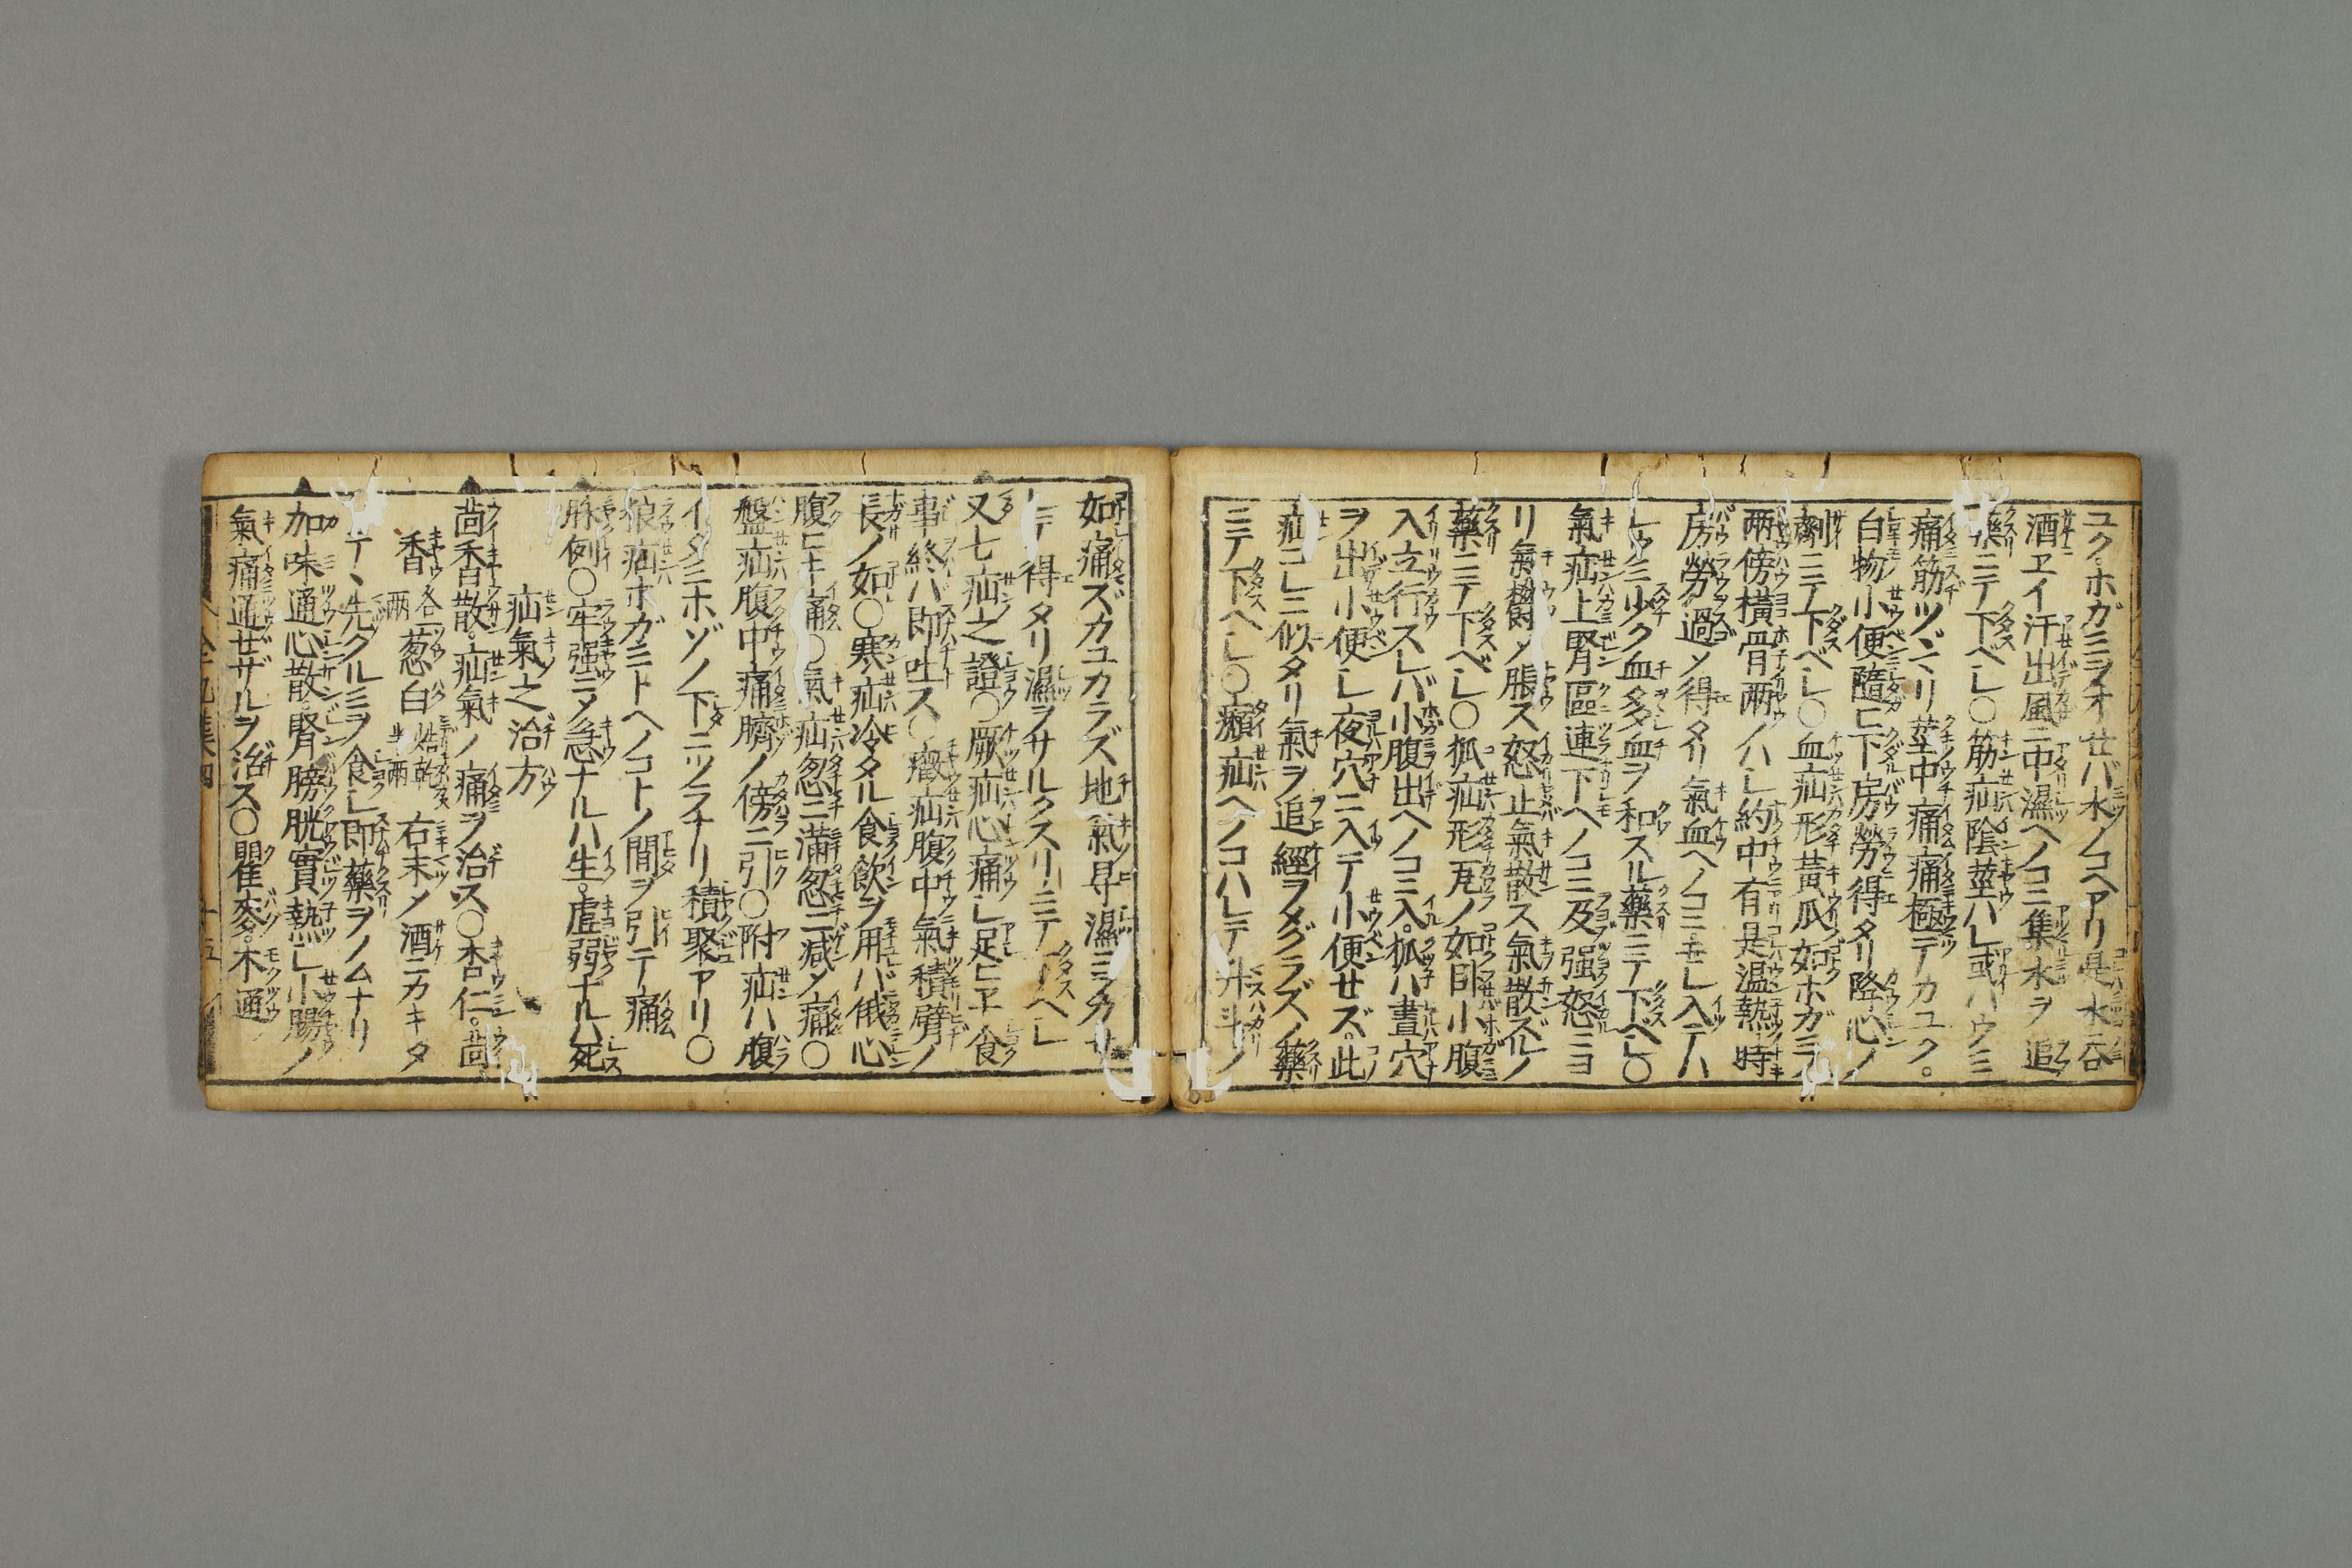 ユク。ホガミヲオセバ水ノコヘアリ是水呑
酒ヱイ汗出風ニ中濕ヘノコニ集水ヲ追
藥ニテ下ヘシ〇筋疝陰莖ハレ或ハウミ
痛筋ツヾマリ莖中痛痛極テカユク。
白物小便隨ヒ下房勞得タリ降心ノ
劑ニテ下ベシ〇血疝形黃瓜如ホガミノ
兩傍橫骨兩ノハシ約中有是温熱時
房勞過メ得タリ氣血ヘノコニ乖レ入テハ
レウミ少ク血多血ヲ和スル藥ニテ下ベシ〇
氣疝上腎區連下ヘノコニ及强怒ニヨ
リ氣欝メ脹ス怒止氣散ス氣散ズルノ
藥ニテ下ベシ〇狐疝形瓦ノ如臥小腹
入立行スレバ小腹出ヘノコニ入。狐ハ晝穴
ヲ出小便シ夜穴ニ入テ小便セズ。此
疝コレニ似タリ氣ヲ追經ヲメグラスノ藥
ニテ下ヘシ〇㿗疝ヘノコハレテ升斗ノ
如痛ズカユカラズ地氣卑濕ミヲカサ
ニテ得タリ濕ヲサルクスリニテ下ヘシ
又七疝之證〇厥疝心痛シ足ヒヱ食
事終ハ即吐ス〇癥疝腹中氣積臂ノ
長ノ如〇寒疝冷タル食飮ヲ用バ俄心
腹ヒキ痛〇氣疝忽ニ滿忽ニ減メ痛〇
盤疝腹中痛臍ノ傍ニ引〇附疝ハ腹
イタミホゾノ下ニツラナリ積聚アリ〇
狼疝ホガミトヘノコトノ間ヲ引テ痛
脉例〇牢强ニメ急ナルハ生。虛弱ナルハ死
疝氣之治方
茴香散。疝氣ノ痛ヲ治ス〇杏仁。茴
香 各一兩 葱白 焙乾半兩 右末メ酒ニカキタ
テ、先クルミヲ食シ即藥ヲノムナリ
加味通心散。腎膀胱實熱シ小腸ノ
氣痛通ゼザルヲ治ス〇瞿麥。木通